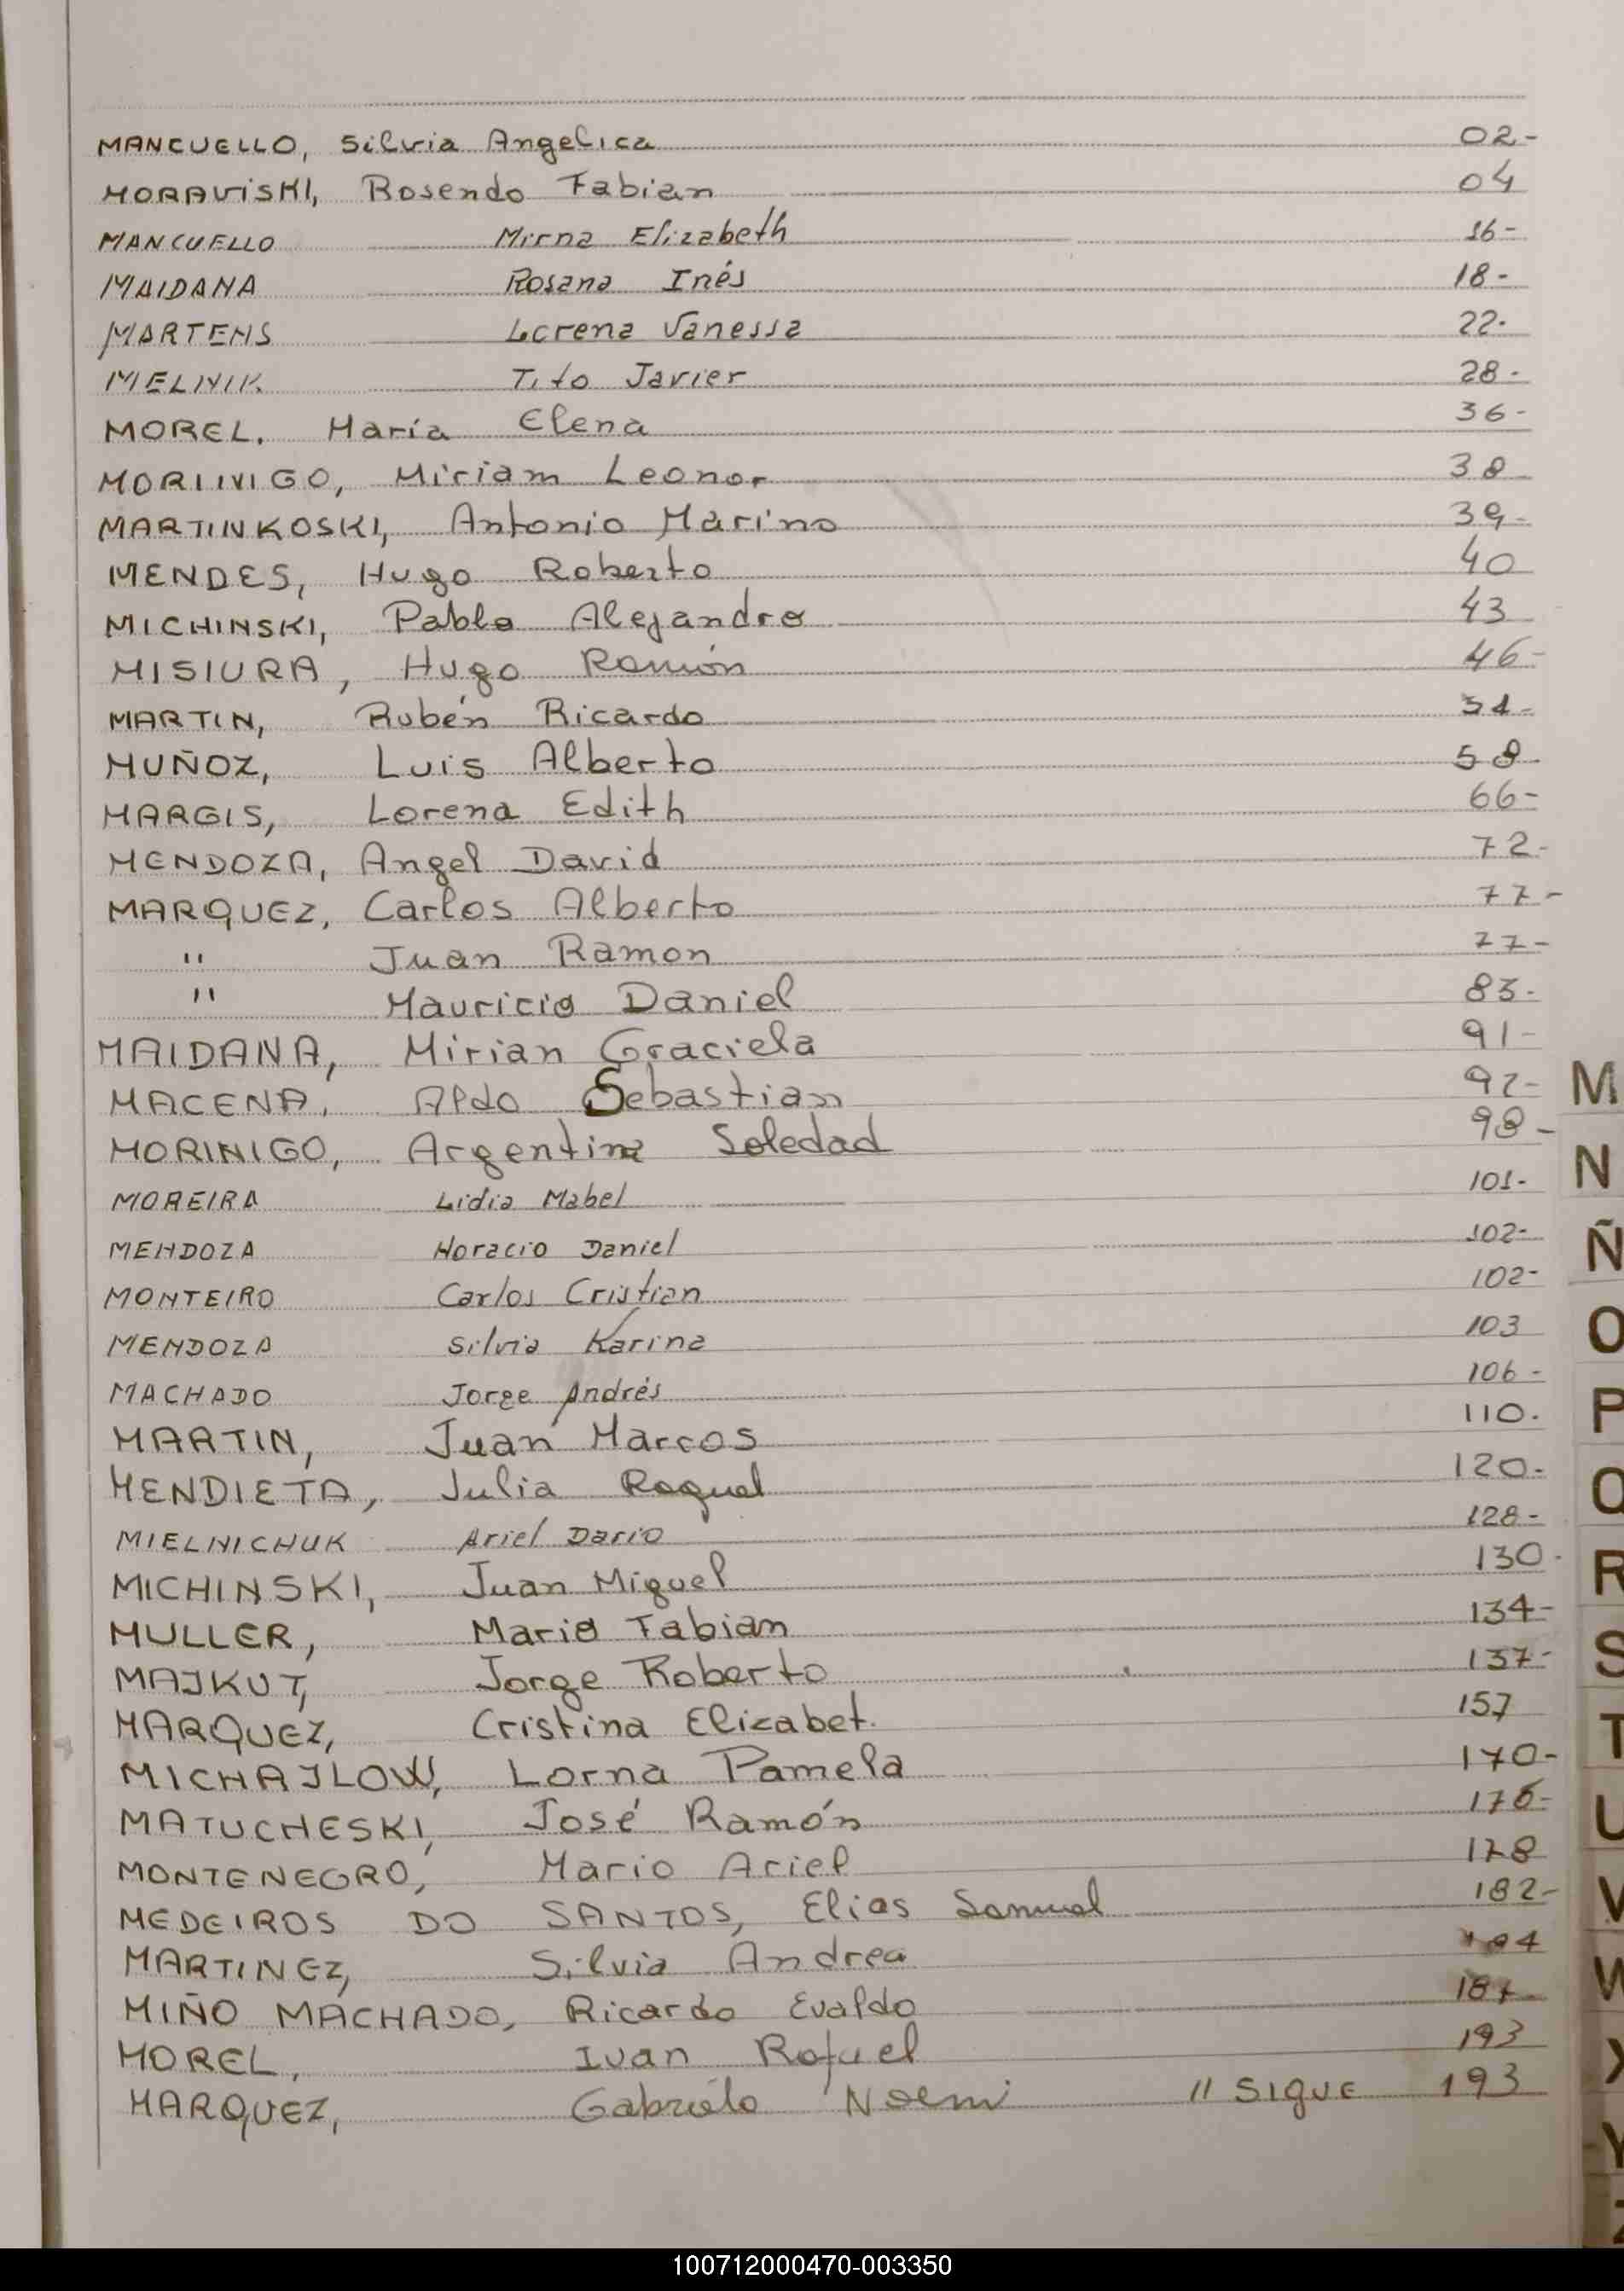 MANCUELLO, Silvia Angelica 02-
MORAVISKI, Rosendo Fabian 04
MANCUELLO Mirna Elizabeth 16-
MAIDANA Rosana Inés 18-
MARTENS Lorena Vanessa 22-
MELNIK Tito Javier 28-
MOREL. María Elena 36-
MORINIGO, Miriam Leonor 38
MARTINKOSKI, Antonio Marino 39-
MENDES, Hugo Roberto 40
MICHINSKI, Pablo Alejandro 43
MISIURA, Hugo Ramón 46-
MARTIN, Rubén Ricardo 51-
MUÑOZ, Luis Alberto 58
MARGIS, Lorena Edith 66-
MENDOZA, Angel David 72-
MARQUEZ, Carlos Alberto 77-
" Juan Ramon 77-
" Mauricio Daniel 83-
MAIDANA, Mirian Graciela 91-
MACENA, Aldo Sebastian 92-
MORINIGO, Argentina Soledad 98-
MOREIRA Lidia Mabel 101-
MENDOZA Horacio Daniel 102-
MONTEIRO Carlos Cristian 102-
MENDOZA Silvia Karina 103
MACHADO Jorge Andrés 106-
MARTIN, Juan Marcos 110.
MENDIETA, Julia Raquel 120-
MIELNICHUK Ariel Dario 128-
MICHINSKI, Juan Miguel 130-
MULLER, Mario Fabian 134-
MAJKUT, Jorge Roberto 137-
MARQUEZ, Cristina Elizabet. 157
MICHAJLOW, Lorna Pamela 170-
MATUCHESKI, José Ramón 176-
MONTENEGRO, Mario Ariel 178
MEDEIROS DO SANTOS, Elias Samuel 182-
MARTINEZ, Silvia Andrea
MIÑO MACHADO, Ricardo Evaldo 187-
MOREL, Ivan Rafael 193
MARQUEZ, Gabriela Noemi // SIGUE 193
M
N
Ñ
O
P
Q
R
S
T
U
V
W
X
Y
Z
100712000470-003350